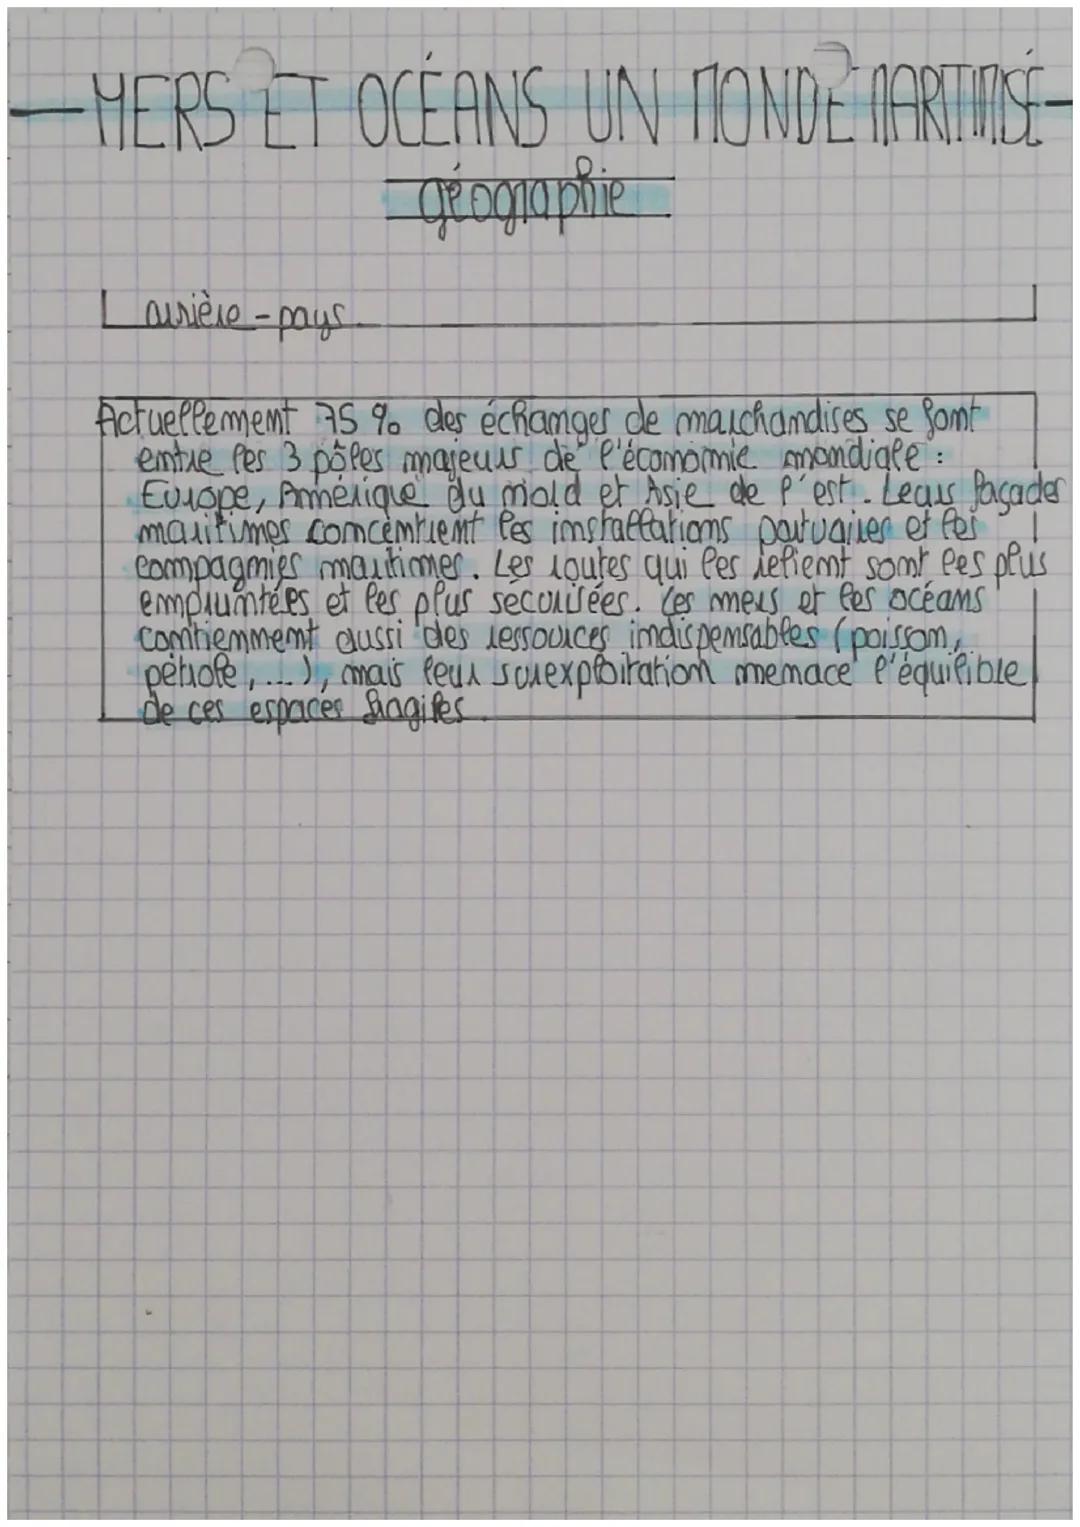 MERS ET OCÉANS UN MONDE MARITIMISÉ
géographie
arrière-pays
Actuellement 75 % des échanges de marchandises se font
entre les 3 pôles majeurs de l'économie mondiale :
Europe, Amérique du nord et Asie de l'est. Leurs façades
maritimes concentrent les installations portuaires et les
compagnies maritimes. Les routes qui les relient sont les plus
empruntées et les plus sécurisées. Les mers et les océans
contiennent aussi des ressources indispensables (poisson,
pétrole, ...), mais leur surexploitation menace l'équilibre
de ces espaces fragiles